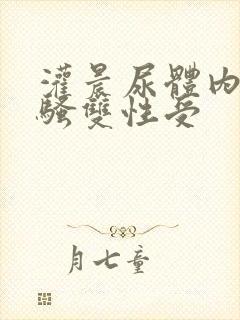 灌晨尿體內
騷雙性受
月七童